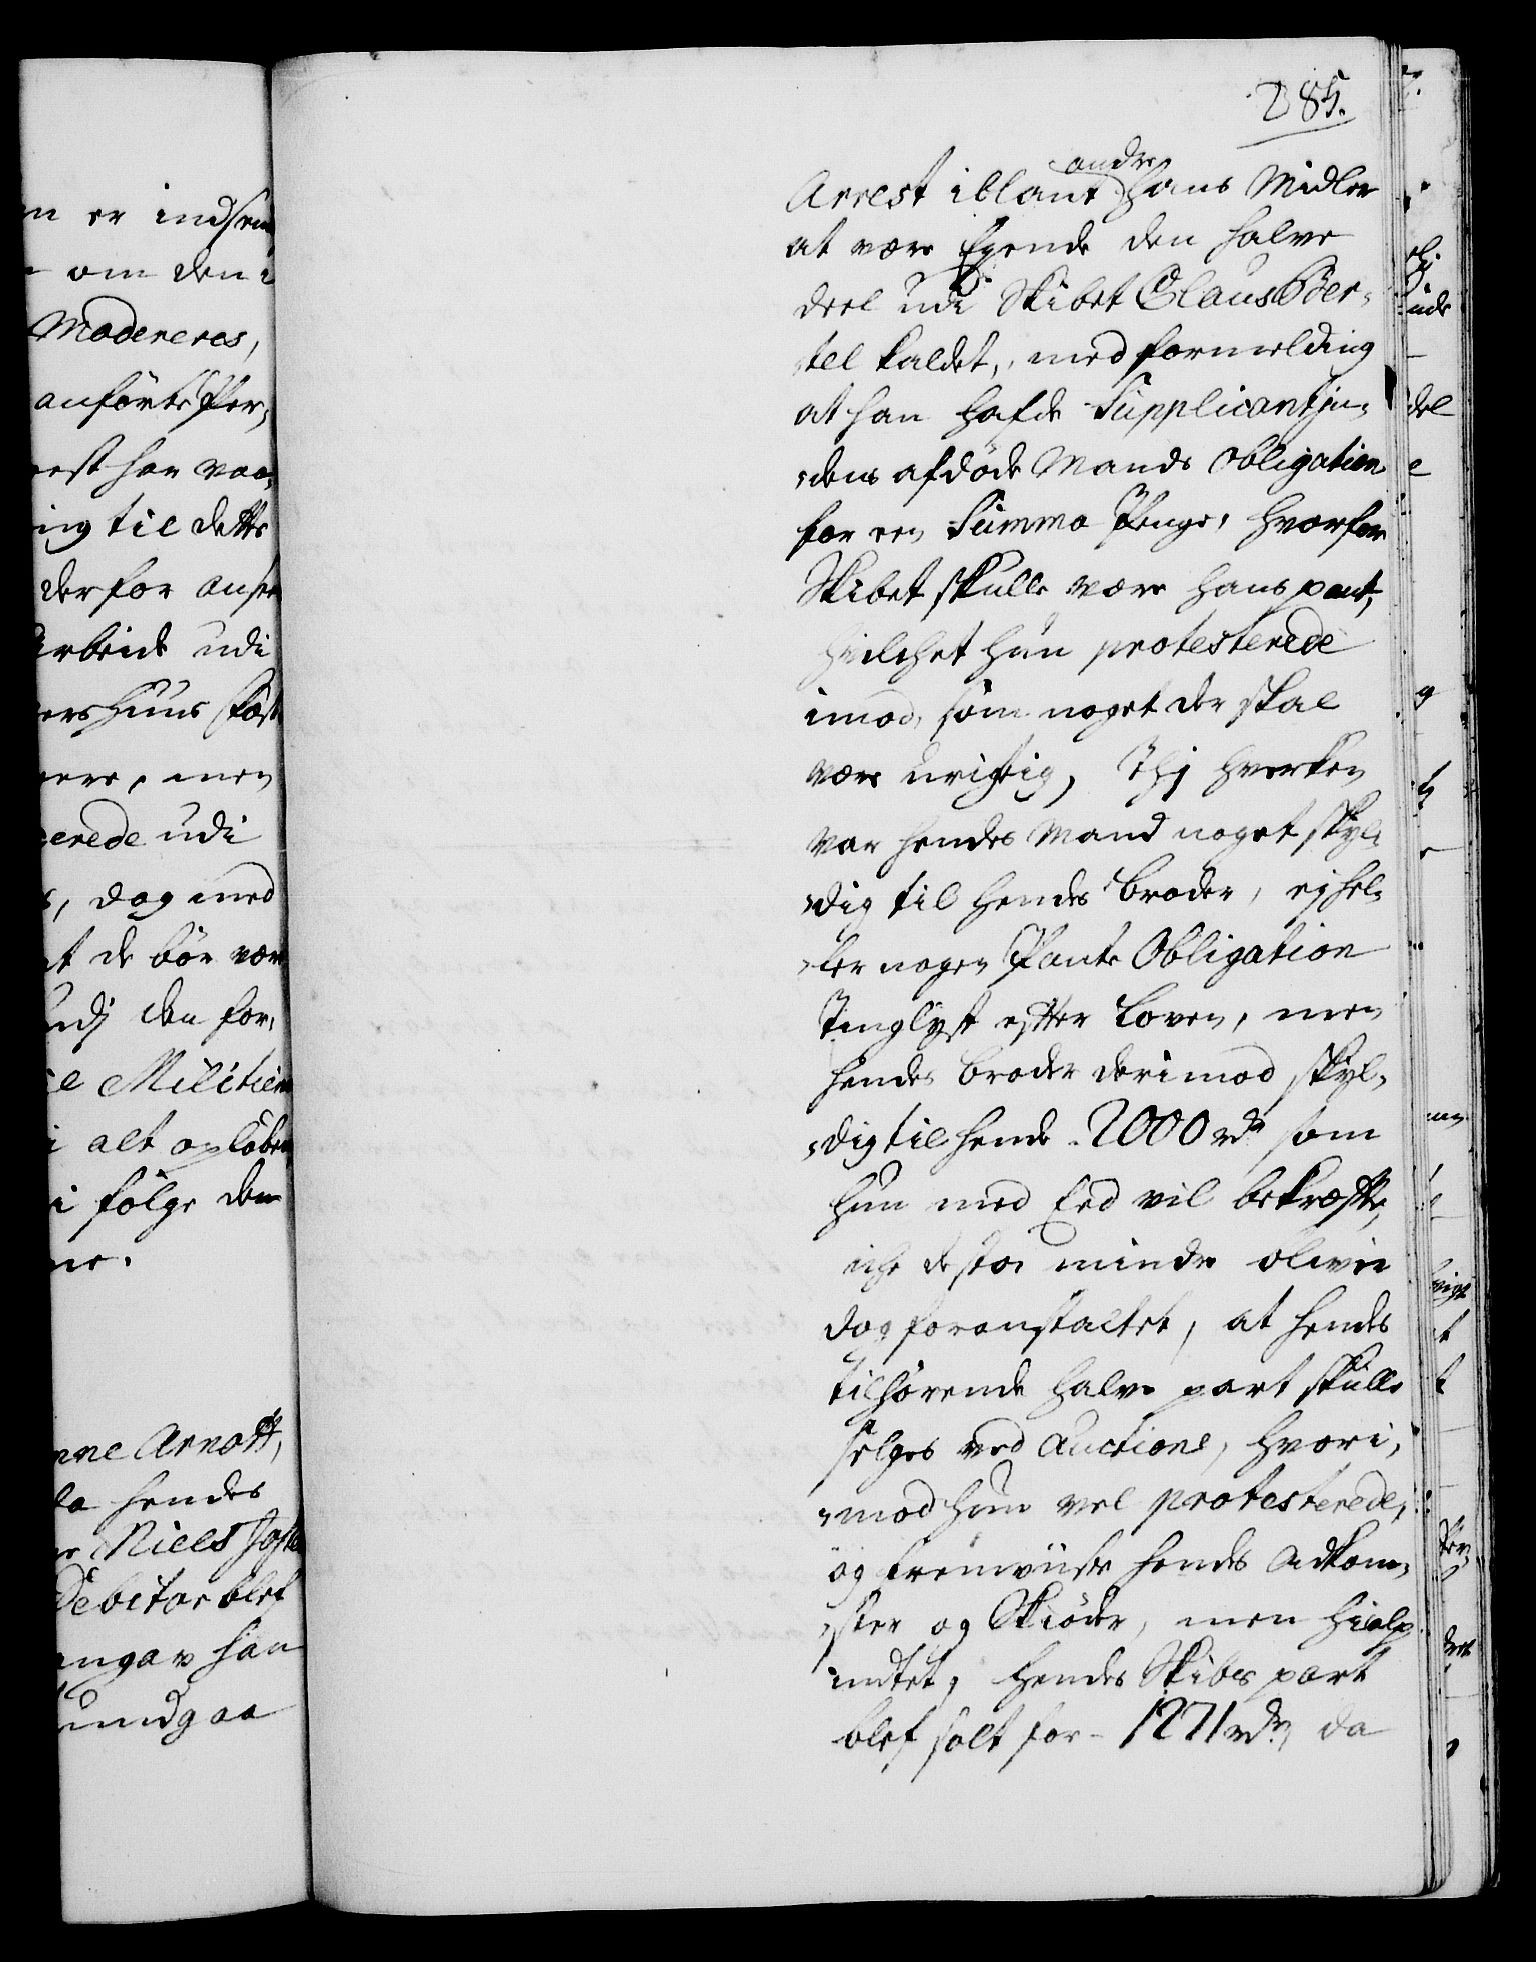 285.
Arrest iblant andre hans Midler
at være Egende den halve
deel udi Skibet Claus Ber¬
tel kaldet, med formelding
at han hafde Supplicantin¬
dens afdöde Mands Obligation
for en Summa Penge, hvorfor
Skibet skulle være hans pant,
hvilchet hun protesterede
imod, som noget der skal
være urigtig, Thj hverken
var hendes Mand noget skyl¬
dig til hendes broder, ej hel¬
ler nogen Pante Obligation
Tinglyst efter Loven, men
hendes broder derimod skyl¬
dig til hende 2000 rdr som
hun med Eed vil bekræfte,
iche desto mindre blev
dog foranstaltet, at hendes
tilhörende halve part skulle
selges ved Auctione, hvori¬
mod hun vel protesterede,
og fremviiste hendes Adkom¬
ster og Skiöder, men hialp
indtet, hendes Skibes part
blef solt for 1271 rdr, da
er indsen
om den
Modereres,
anförte Per¬
til dette
derfor ansee
Arbeide udi
udi
dog med
at de bör vær
den for¬
Militien
alt oplöben
i fölge den
Arnott,
hendes
Niels
Debitor blef
angav han
undgaa